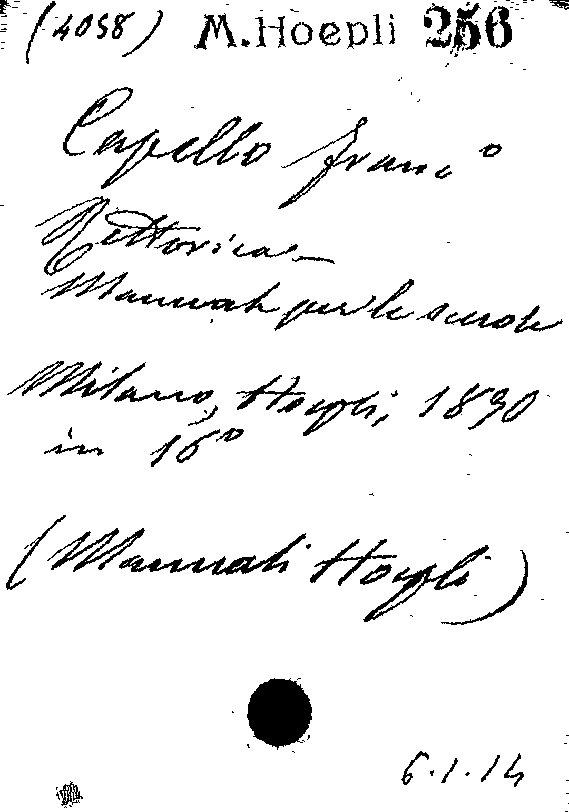 (4058) M. Hoepli 256
Capello Franc.º
Rettorica –
Manuale per le scuole
Milano, Hoepli, 1890
in 16º
(Manuali Hoepli)
6.1.14